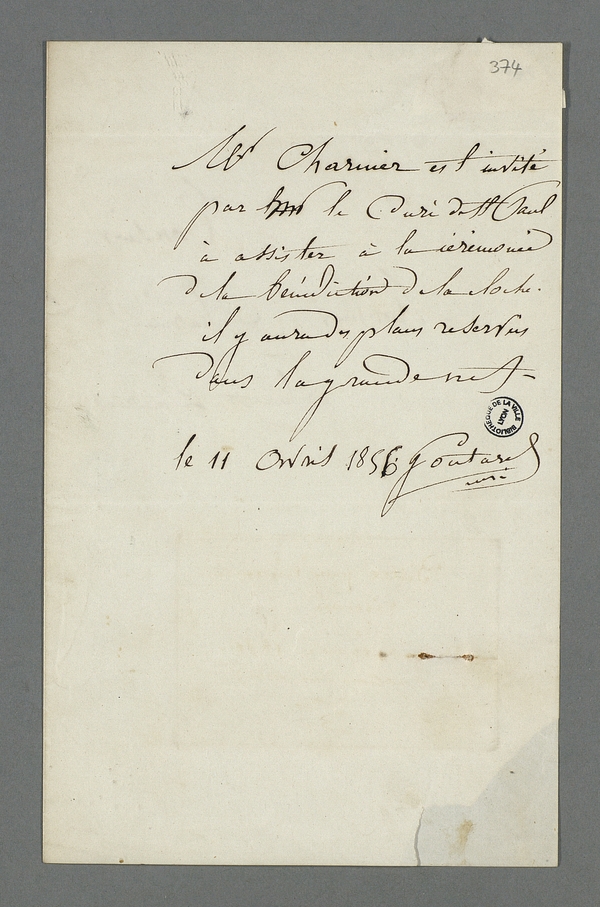 374
Mr Charvier est invité
par Mr le Curé de St Paul
à assister à la cérémonie
de la bénédiction de la cloche.
il y aura des places reservées
dans la grande nef
BIBLIOTHEQUE DE LA VILLE LYON
le 11 Avril 1856. Goutard
curé